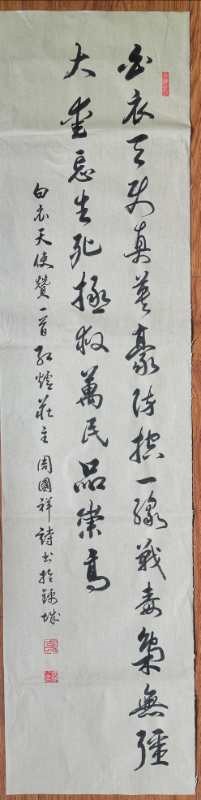 白衣天使真英豪防控一線戰毒梟無疆
大愛忘生死拯救萬民品崇高
白衣天使贊一首紅莊主周國祥詩書於城